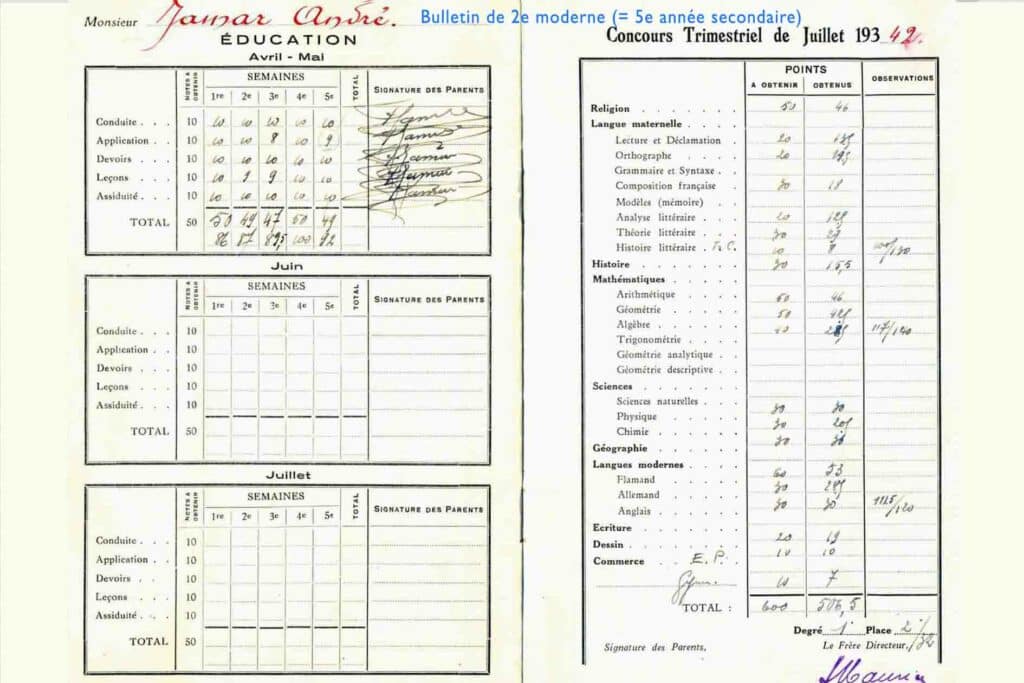 Bulletin de 2e moderne (= 5e année secondaire)
Monsieur Jamar André.
ÉDUCATION
Avril - Mai
NOTES A OBTENIR SEMAINES TOTAL SIGNATURE DES PARENTS
1re 2e 3e 4e 5e
Conduite . . . 10 10 10 10 10 10
Application . . 10 10 10 8 10 9
Devoirs . . . 10 10 10 10 10 10
Leçons . . . 10 10 9 9 10 10
Assiduité . . . 10 10 10 10 10 10
TOTAL 50 50 49 47 50 49
86 87 89,5 100 92
Juin
NOTES A OBTENIR SEMAINES TOTAL SIGNATURE DES PARENTS
1re 2e 3e 4e 5e
Conduite . . . 10
Application . . 10
Devoirs . . . 10
Leçons . . . 10
Assiduité . . . 10
TOTAL 50
Juillet
NOTES A OBTENIR SEMAINES TOTAL SIGNATURE DES PARENTS
1re 2e 3e 4e 5e
Conduite . . . 10
Application . . 10
Devoirs . . . 10
Leçons . . . 10
Assiduité . . . 10
TOTAL 50
Concours Trimestriel de Juillet 193 42.
POINTS OBSERVATIONS
A OBTENIR OBTENUS
Religion 50 46
Langue maternelle
Lecture et Déclamation 20
Orthographe 20
Grammaire et Syntaxe
Composition française 30 18
Modèles (mémoire)
Analyse littéraire 20
Théorie littéraire 30
Histoire littéraire 10 8
Histoire 30 15,5
Mathématiques
Arithmétique 50 46
Géométrie 50
Algèbre 40 117/140
Trigonométrie
Géométrie analytique
Géométrie descriptive
Sciences
Sciences naturelles 30 30
Physique 30
Chimie 30
Géographie
Langues modernes
Flamand 60 53
Allemand 30
Anglais 30 30 /120
Ecriture
Dessin 20 19
Commerce E. P. 10 10
10 7
TOTAL : 600 506,5
Degré 1 Place 2 /32
Signature des Parents, Le Frère Directeur,